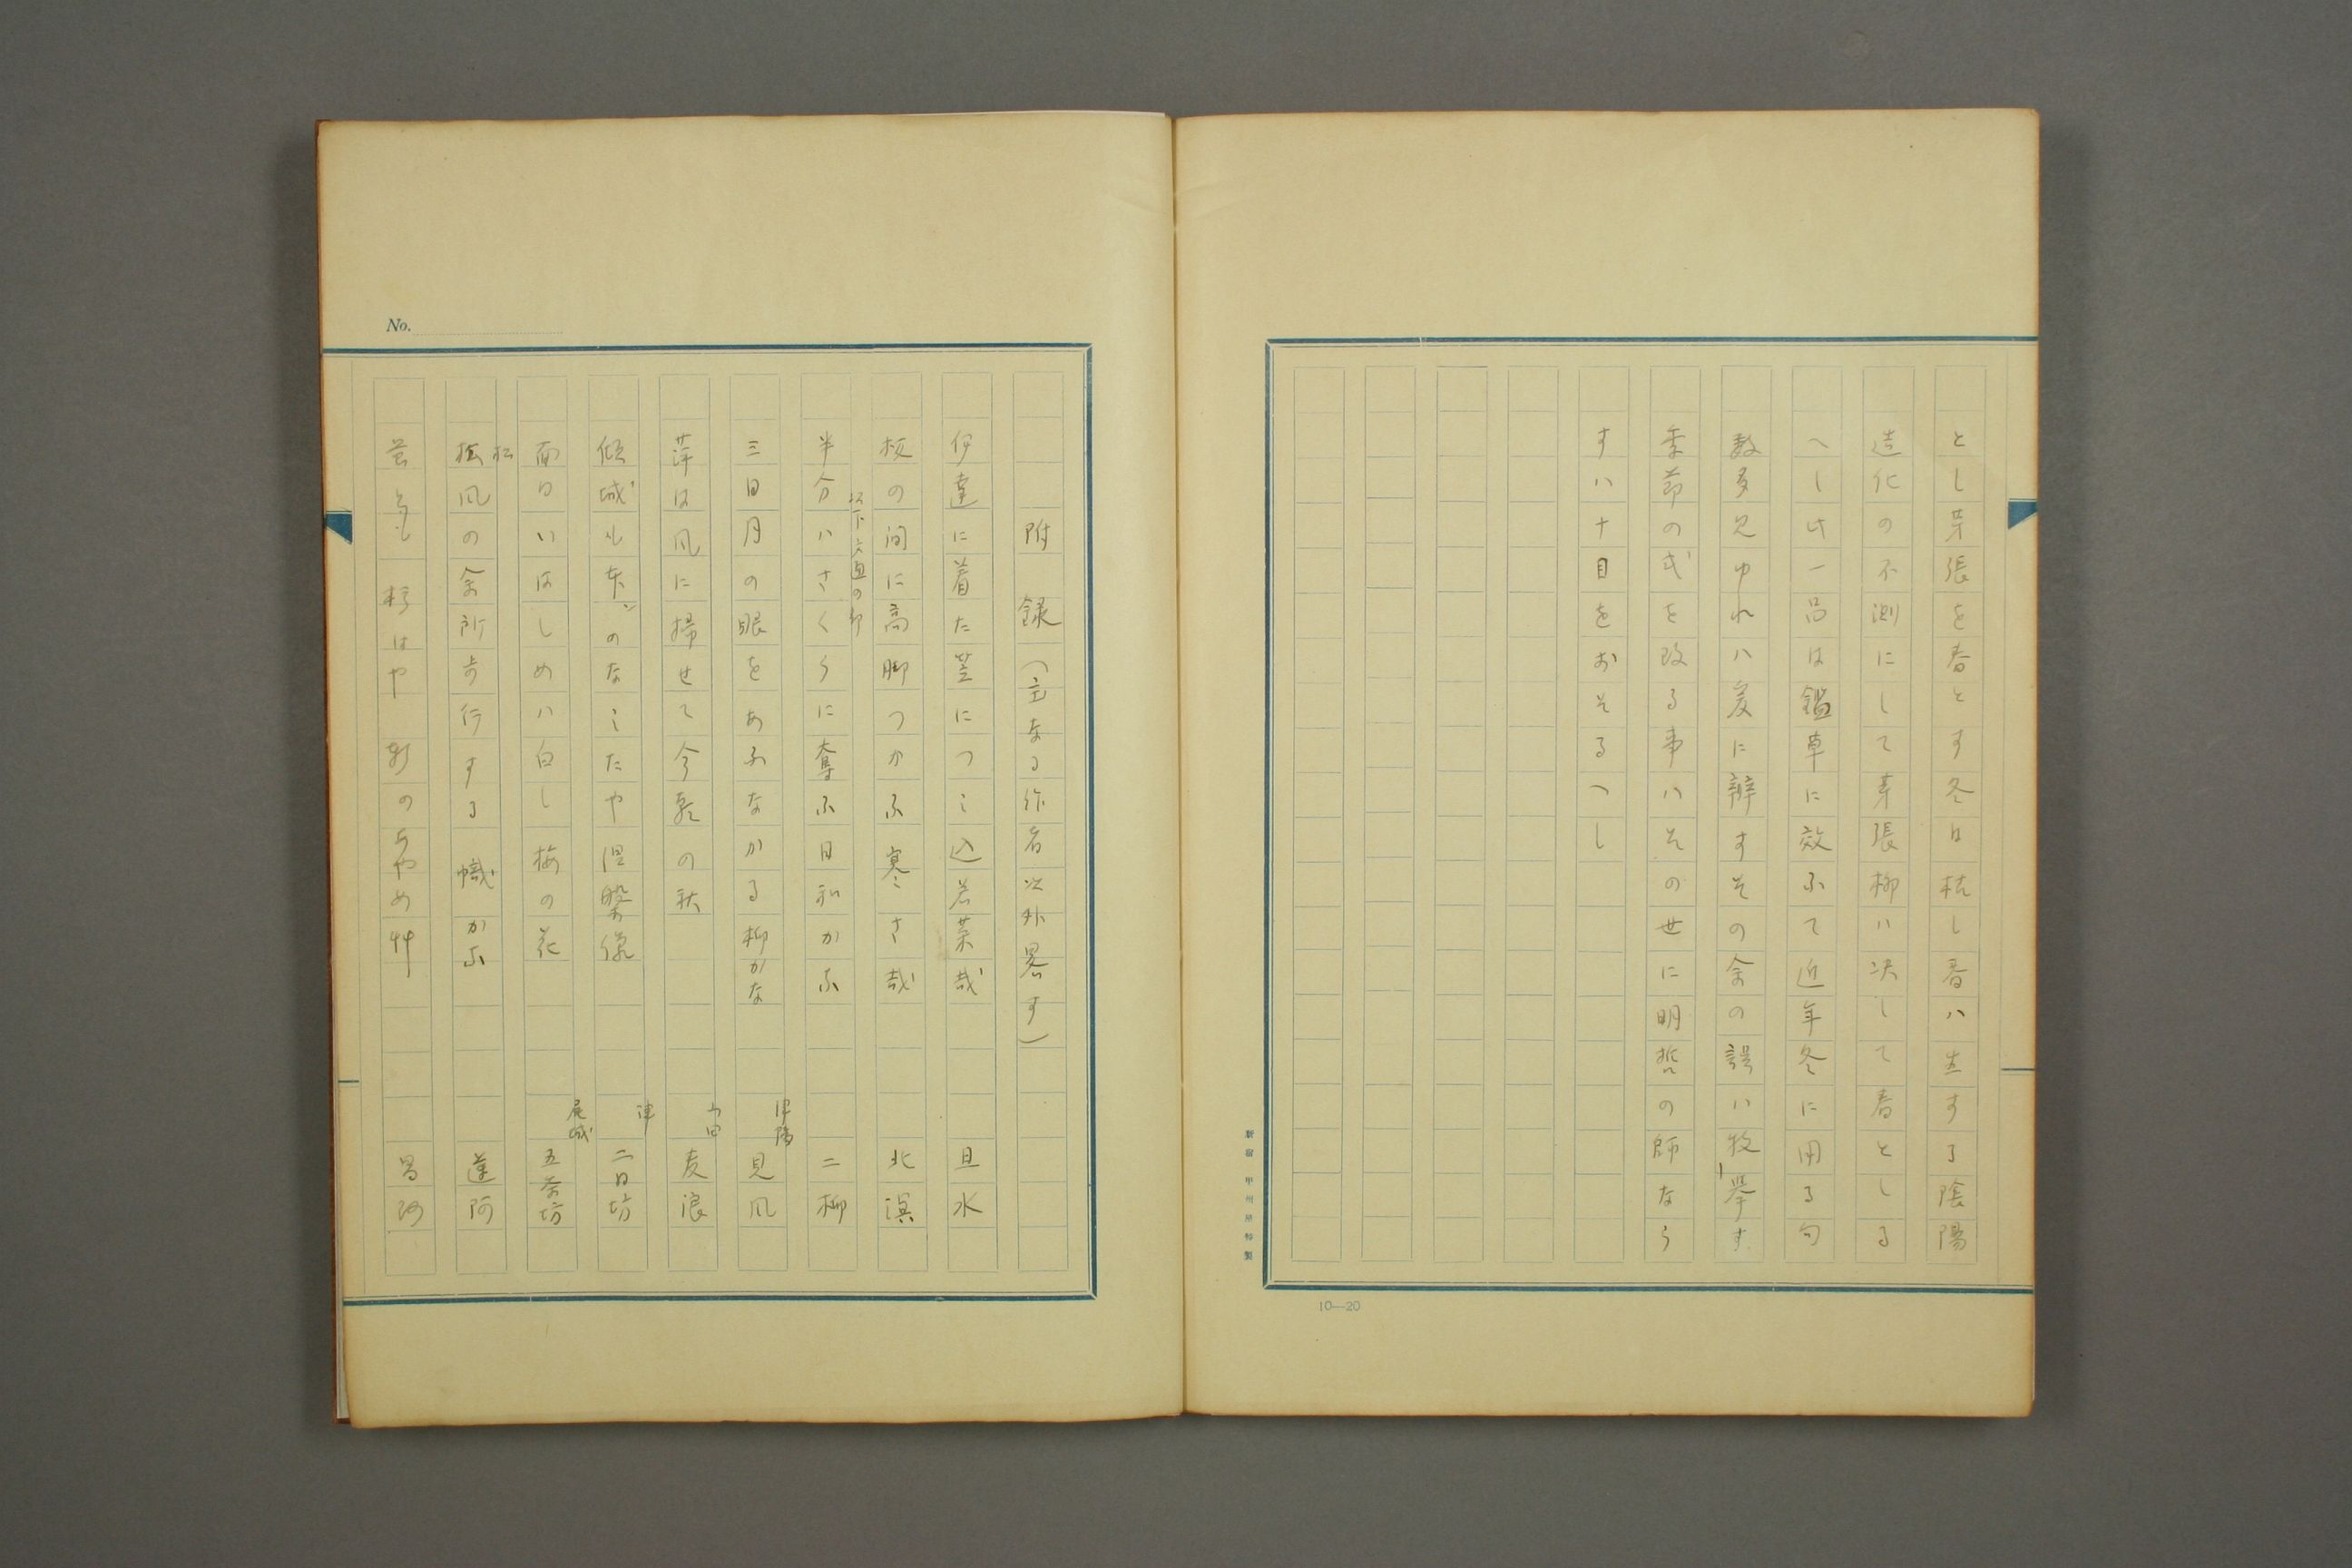 とし芽張を春とす冬は枯し春ハ生する陰陽
造化の不測にして芽張柳ハ决して春としる
へし此一品は鑑草に效ふて近年冬に用る句
数多見ゆれハ爰に辨すその余の誤ハ枚挙す
季節の式を改る事ハその世に明哲の師なら
すハ十目をおそるへし
新宿 甲州屋特製
10—20
No.
附 録（主なる作者以外畧す）
伊達に着た笠につミ込若菜哉 旦水
桜の間に高脚つかふ寒さ哉 北溟
以下六 の部
半分ハさくらに奪ふ日和かふ 二柳
三日月の眼をあふなかる柳かな 津陽 見風
萍は風に掃せて今朝の秋 友浪
傾城もあのなミたや涅槃像 津 二日坊
面白いはしめハ白し梅の花 尾城 五茶坊
松
松風の余所歩行する幟かふ 蓮阿
はや 軒のあやめ艸